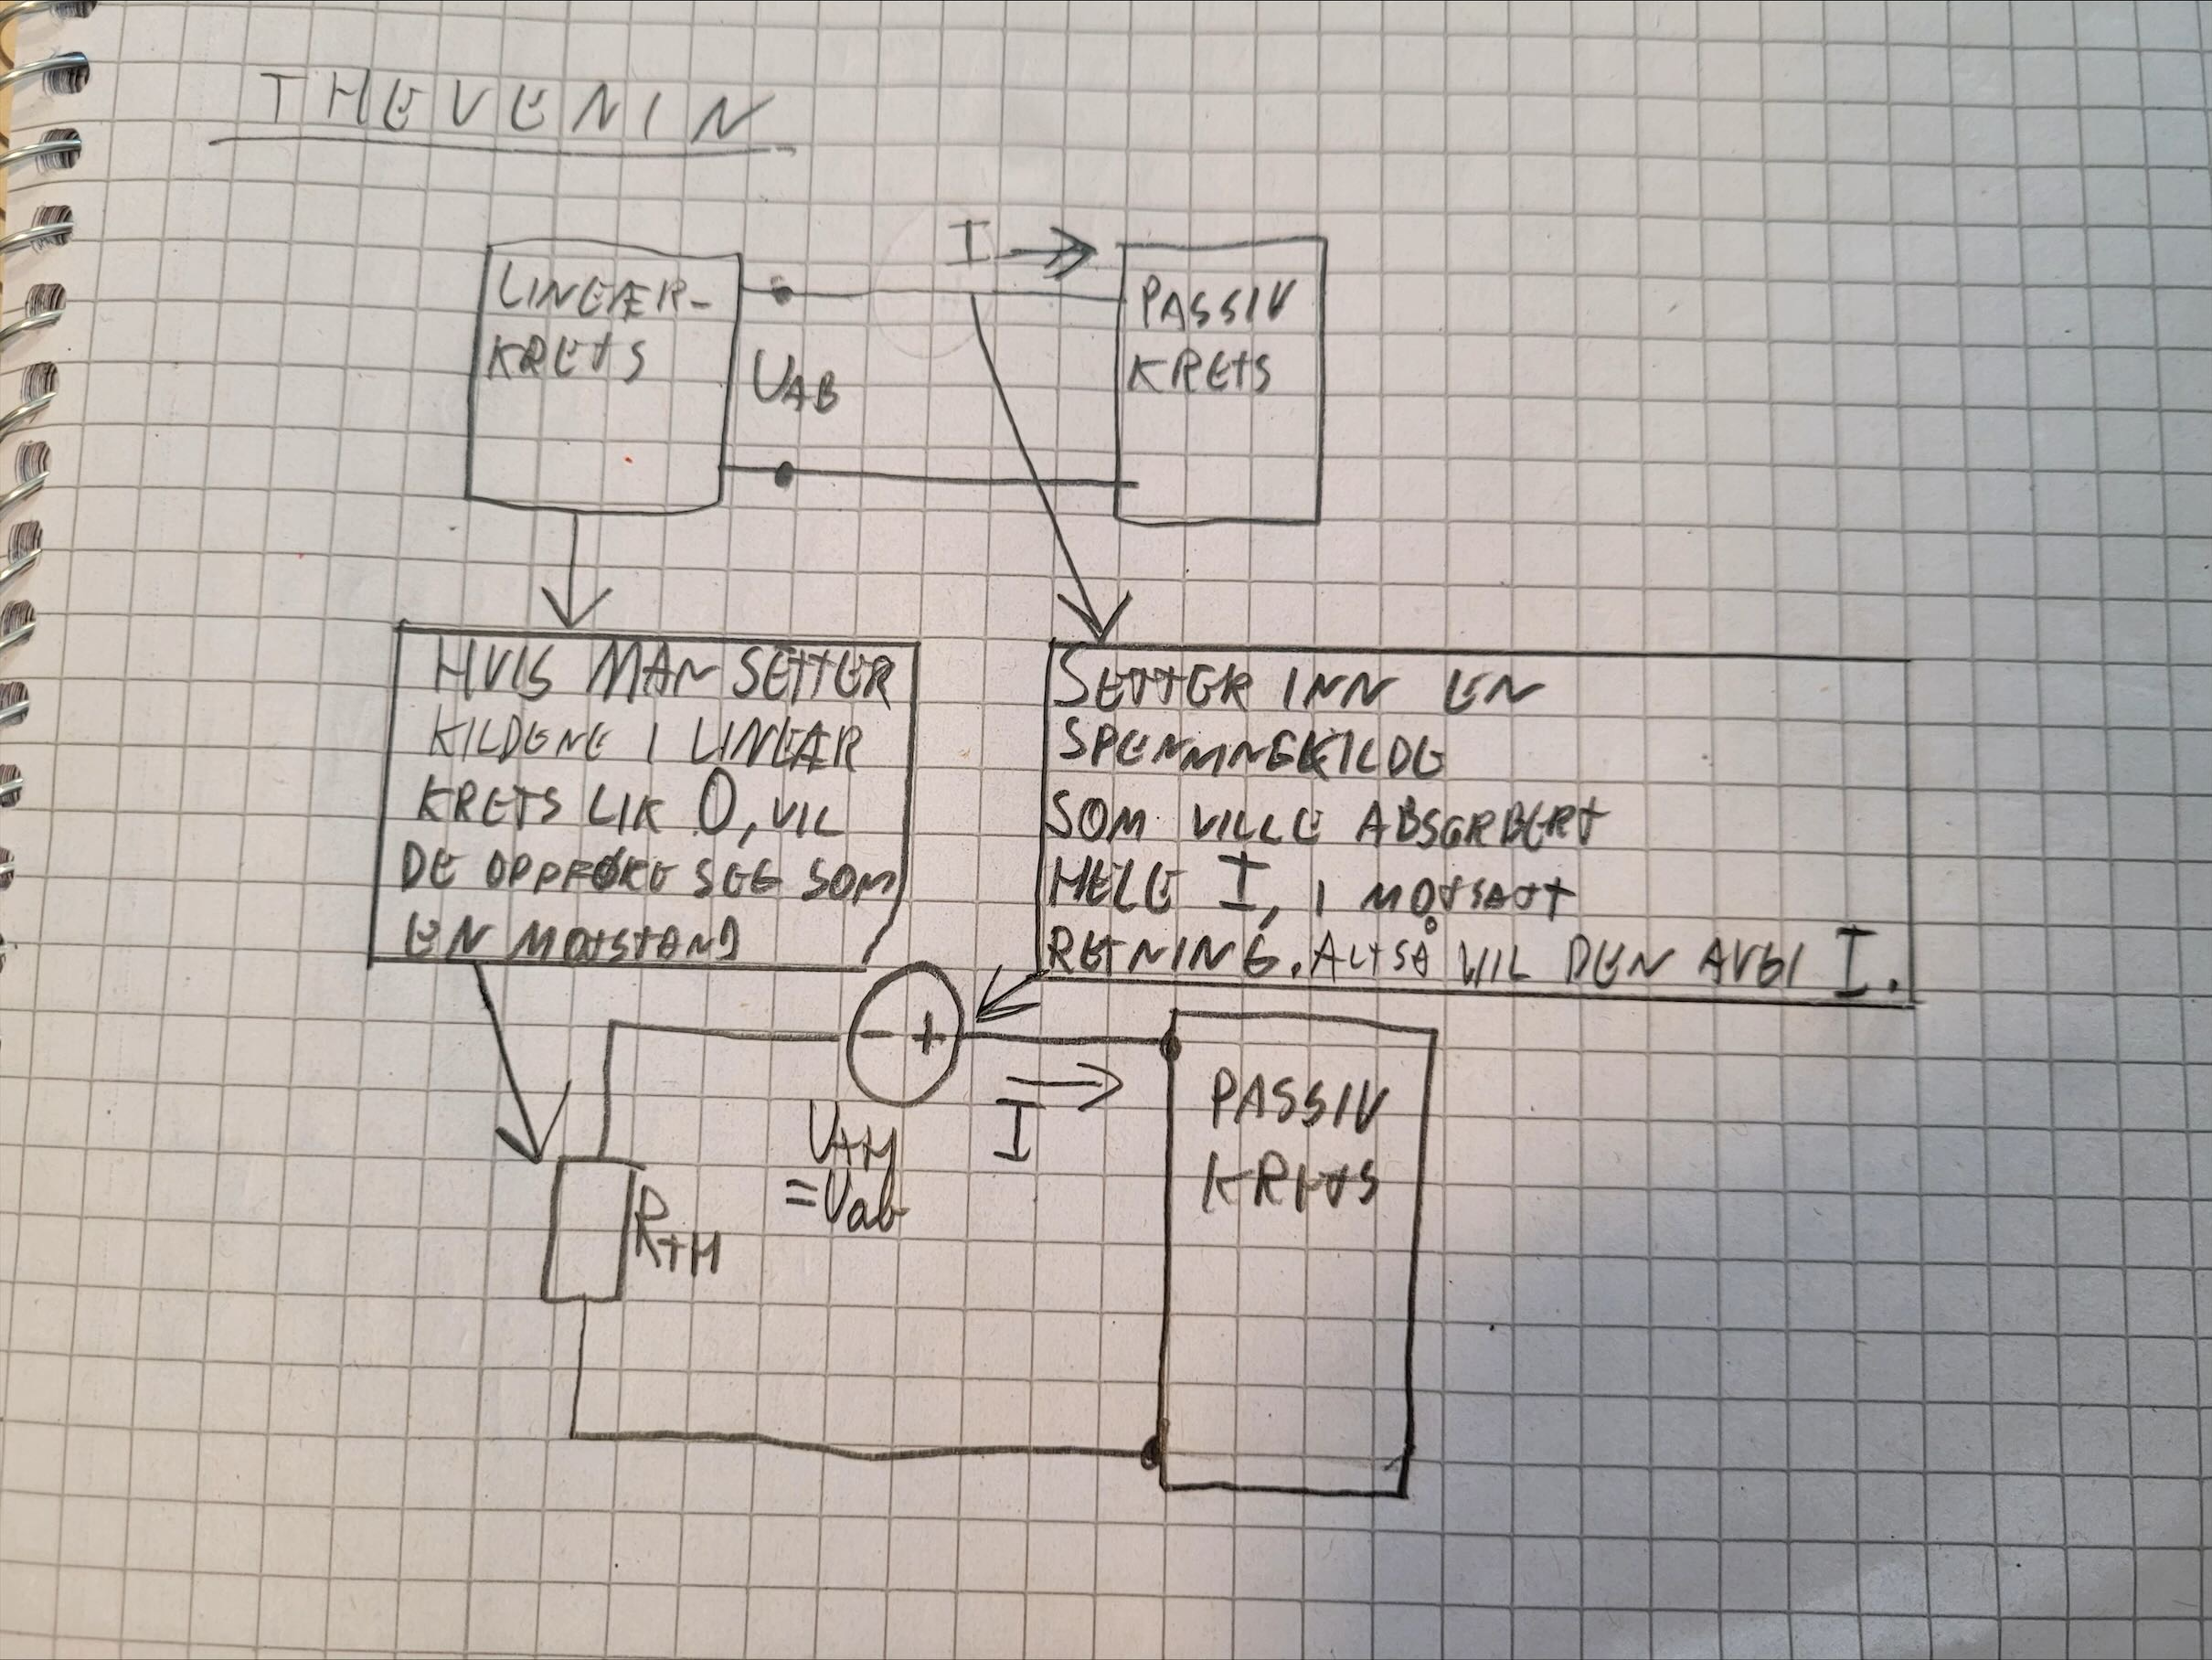 THEVENIN
I
LINEÆR-
KRETS
PASSIV
KRETS
UAB
HVIS MAN SETTER
KILDENE I LINEÆR
KRETS LIK 0, VIL
DE OPPFØRE SEG SOM
EN MOTSTAND
SETTER INN EN
SPENNINGKILDE
SOM VILLE ABSORBERT
HELE I, I MOTSATT
RETNING. ALTSÅ VIL DEN AVGI I.
- +
I
UTH
=Uab
RTH
PASSIV
KRETS